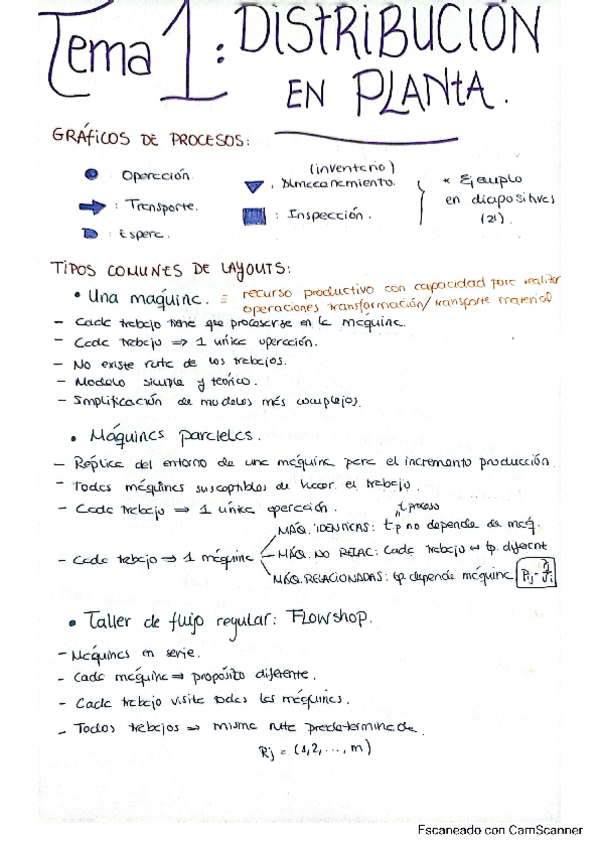 Tema 1: DiStRiBUCIÓN
EN PLANtA.
GRÁFICOS DE PROCESOS:
: Operación
(inventario)
: Almacenamiento.
* Ejemplo
en diapositivas
(21).
: Transporte.
: Inspección.
: Espera.
TIPOS COMUNES DE LAYOUTS:
• Una máquina. = recurso productivo con capacidad para realizar
operaciones transformación/transporte material
- Cada trabajo tiene que procesarse en la máquina.
- Cada trabajo ⇒ 1 única operación.
- No existe ruta de los trabajos.
- Modelo simple y teórico.
- Simplificación de modelos más complejos.
• Máquinas paralelas.
- Réplica del entorno de una máquina para el incremento producción.
- Todas máquinas susceptibles de hacer el trabajo.
- Cada trabajo ⇒ 1 única operación.
t proceso
MÁQ. IDENTICAS: tp no depende de máq.
- Cada trabajo ⇒ 1 máquina
MÁQ. NO RELAC: Cada trabajo ⇔ tp. diferent
MÁQ. RELACIONADAS: tp. depende máquina
• Taller de flujo regular: Flowshop.
- Máquinas en serie.
- Cada máquina ⇒ propósito diferente.
- Cada trabajo visita todas las máquinas.
- Todos trabajos ⇒ misma ruta predeterminada.
Rj = (1,2, ..., m)
Escaneado con CamScanner